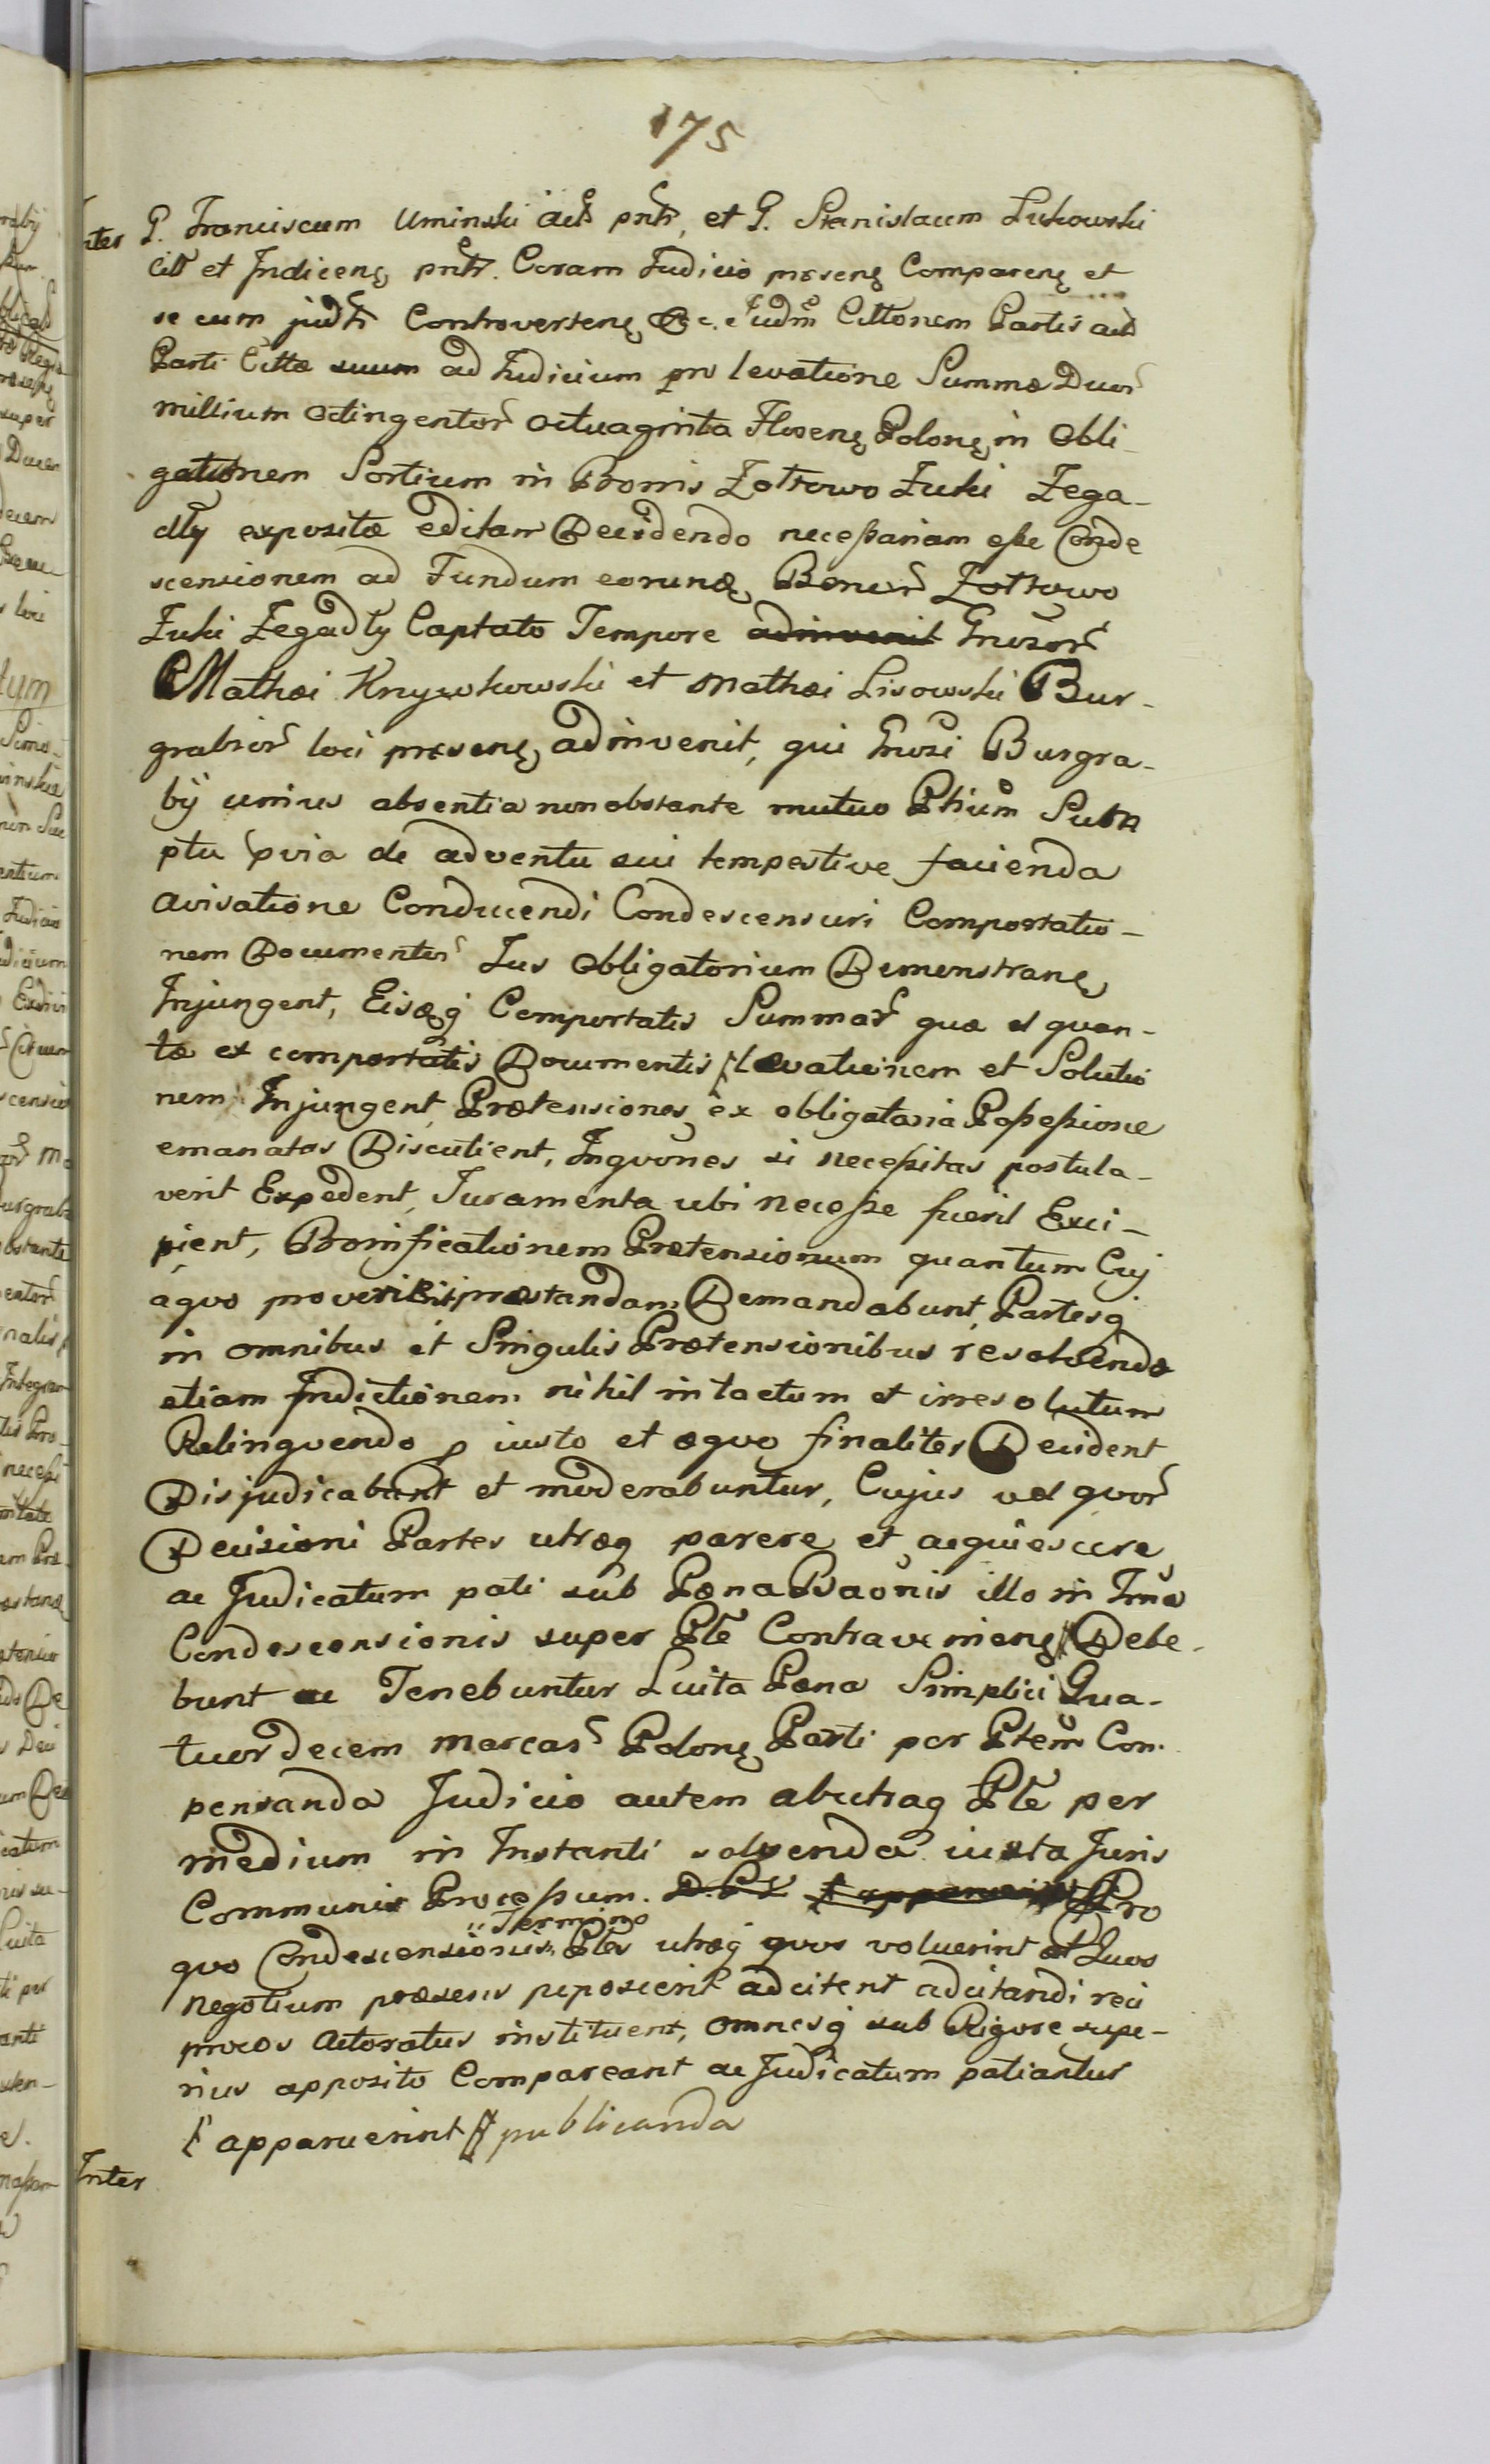 175
Inter G. Franciscum Uminski act pntr, et G. Stanislaum Lukowski
citt et Indicenę pntr. Coram Judicio presenę Comparenę et
se cum judtr Controvertenę &c. Judm Cittonem Partis act
Parti Cittæ suum ad Judicium pro levatione Summæ Duor
millium octingentor octuaginta Florenę Polonę in obli-
gationem Sortium in Bonis Zottowo Zuki Zega-
dły expositæ editam Decidendo necessariam esse Conde
scensionem ad Fundum eorundę Bonor Zottowo
Zuki Zegadły Captato Tempore adinvenit Gnosor
Mathæi Knyzokowski et Mathæi Lisowski Bur-
grabior loci presenę adinvenit, qui Gnosi Burgra-
bij unius absentia non obstante mutuo Ptium Sum
ptu pvia de adventu sui tempestive facienda
avisatione Conducendi Condescensuri Comportatio-
nem Documentor Jus obligatorium Demonstranę
Injungent, Eisq Comportatis Summar quæ et quan-
tæ ex comportatis Documentis levationem et Solutio
nem Injungent Prætensiones ex obligatoria Possessione
emanatas Discutient, Inqvones si necessitas postula-
verit Expedient, Juramenta ubi necesse fuerit Exci-
pient, Bonificationem Prætensionum quantum Cuj
aquo provenerit præstandam Demandabunt, Partesq
in omnibus et Singulis Prætensionibus resolvendo
etiam Indictionem nihil intactum et irresolutum
Relinquendo p iusto et æquo finaliter Decident
Disjudicabunt et moderabuntur, Cujus vel quor
Decisioni Partes utræq parere et acquiescere
ac Judicatum pati sub Pæna Baonis illo in Tmo
Condescensionis super Pte Contravenienę Debe-
bunt ac Tenebuntur Luita Pæna Simplici Qua-
tuordecem marcar Polonę Parti per Ptem Com-
pensanda Judicio autem ab utraq Pte per
medium in Instanti solvenda iuxta Juris
Communis Processum. Pro
Termino
quo Condescensionis Ptes utræq quos voluerint et Quos
negotium præsens poposcerit adcitent adcitandi reci
procos Actoratus instituent, omnesq sub Rigore supe-
rius apposito Compareant ac Judicatum patiantur
apparuerint publicanda
Inter